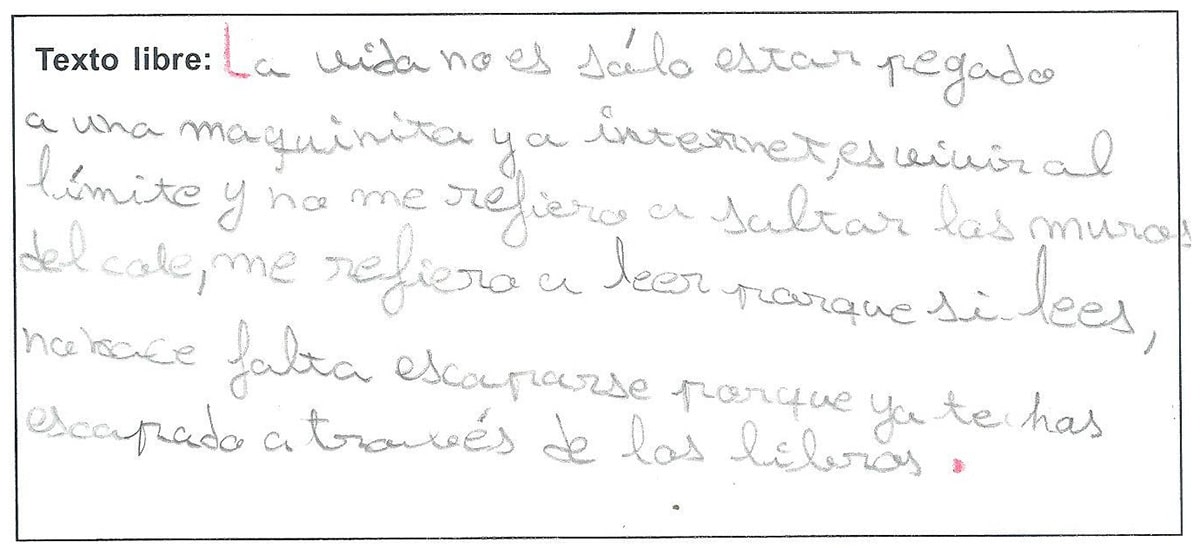 Texto libre: La vida no es sólo estar pegado
a una maquinita y a internet, es vivir al
límite y no me refiero a saltar los muros
del cole, me refiero a leer porque si lees,
no hace falta escaparse porque ya te has
escapado a través de los libros.